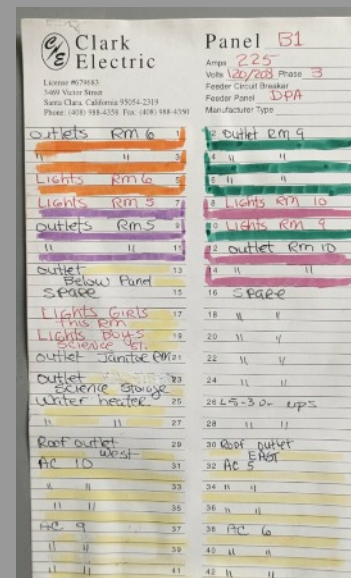 CE Clark Electric
License #679683
3469 Victor Street
Santa Clara, California 95054-2319
Phone: (408) 988-4358 Fax: (408) 988-4350
Panel B1
Amps 225
Volts 120/208 Phase 3
Feeder Circuit Breaker
Feeder Panel DPA
Manufacturer Type
outlets Rm 6 1
2 outlet Rm 9
" " 3
4 " "
Lights Rm 6 5
6 " "
Lights Rm 5 7
8 Lights Rm 10
outlets Rm 5 9
10 Lights Rm 9
" " 11
12 outlet Rm 10
outlet Below Panel 13
14 " "
SPARE 15
16 SPARE
Lights Girls this Rm 17
18 " "
Lights Boys Science St. 19
20 " "
outlet Janitor Rm 21
22 " "
outlet Science Storage 23
24 " "
Water heater 25
26 L5-30 ups
" " 27
28 " "
Roof outlet West 29
30 Roof outlet EAST
AC 10 31
32 AC 5
" " 33
34 " "
" " 35
36 " "
AC 9 37
38 AC 6
" " 39
40 " "
" " 41
42 " "